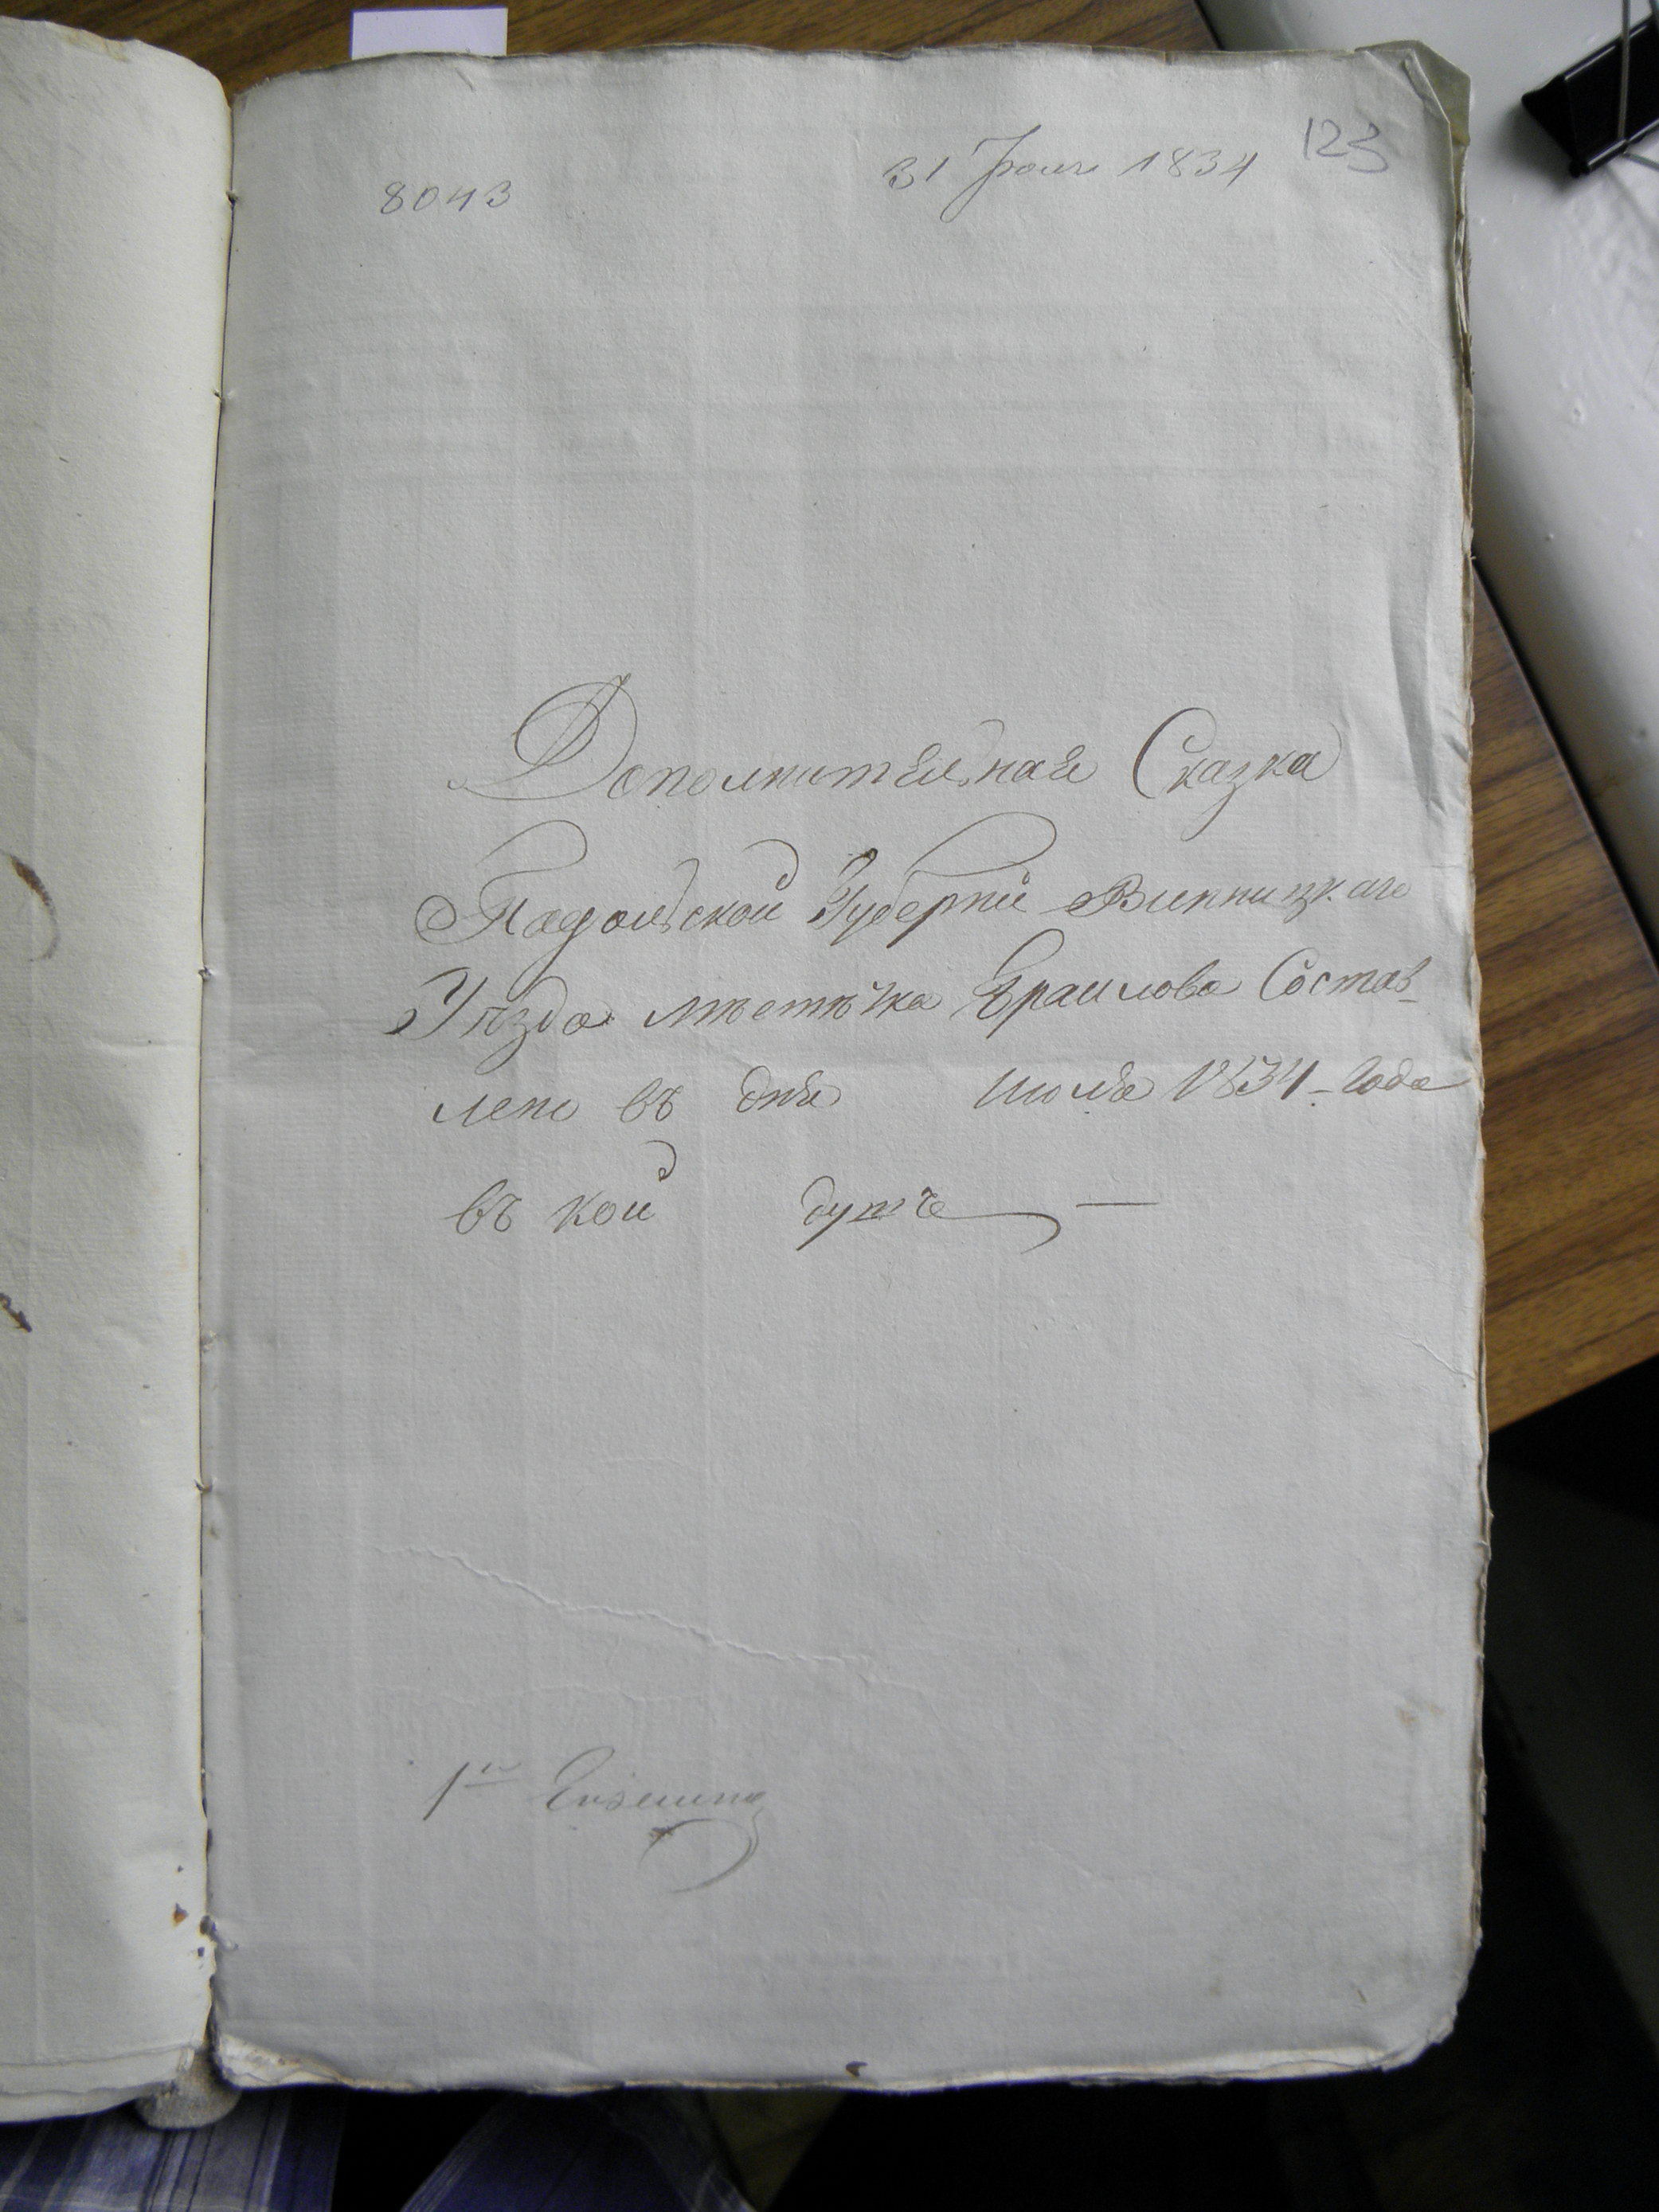 123
8043 31 Іюля 1834
Дополнительная Сказка
Падольской Губерніи Винницкаго
Уѣзда мѣстѣчка Браилова Состав-
лена въ дня июля 1834-Года
въ кой душъ —
1й